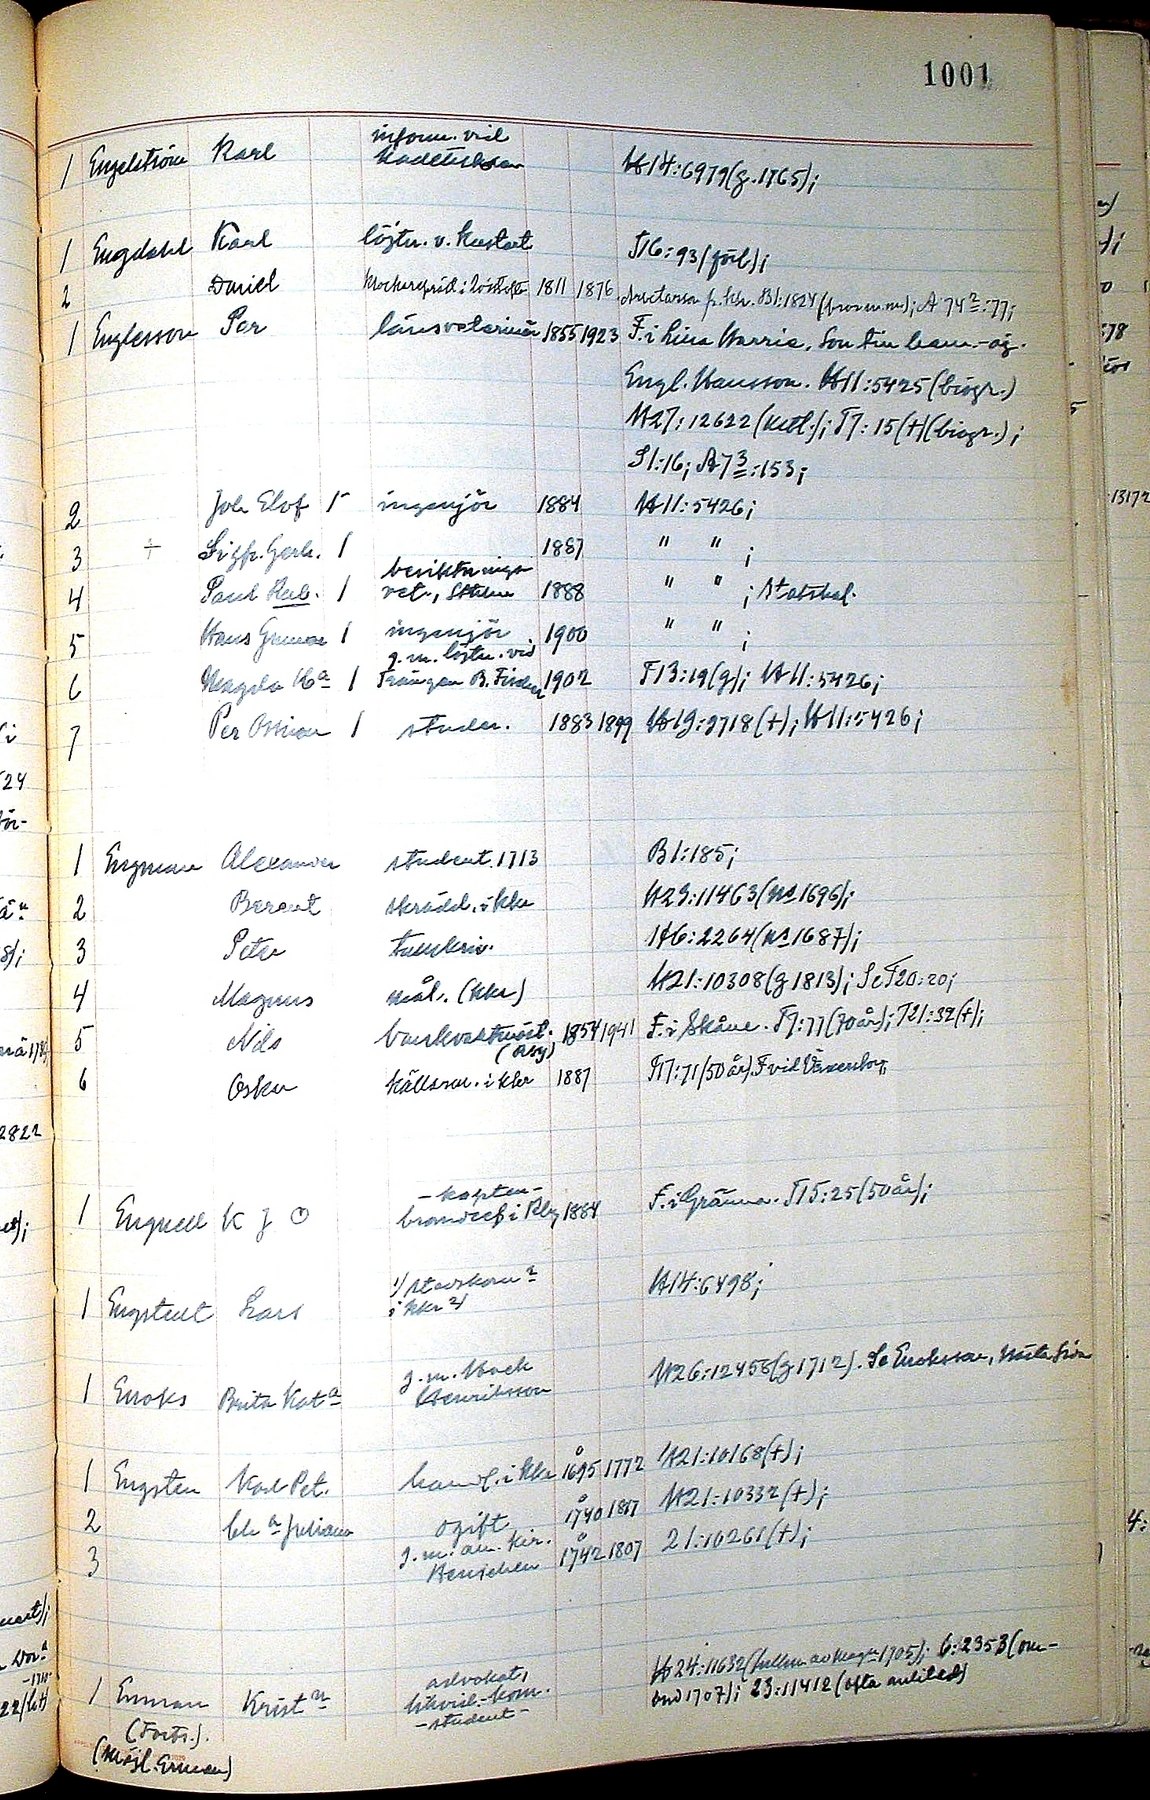 1001
1 Engelström Karl inform. vid
kadettskolan H14:6979(g.1765);
1 Engdahl Karl löjtn. v. Kustart T16:93(förl);
2 Daniel 1811 1876 Bl:1824 A 74²:77;
1 Englesson Per länsveterinär 1855 1923 F. i Lilla Harrie. Son till hem.-äg.
Engl. Hansson. H11:5425(biogr.)
H27:12622 T7:15(+)(biogr.);
S1:16; A73:153;
2 Joh Elof 1 ingenjör 1884 H11:5426;
3 + Sigfr. Gerh. 1 1887 " " ;
4 Paul Herb. 1 besiktnings
vet., Sthlm 1888 " " ; Statskal.
5 Hans Gunnar 1 ingenjör 1900 " " ;
6 Magda Ka 1 g. m. löjtn. vid
Trängen B. 1902 T13:19(g); H11:5426;
7 Per Osman 1 studer. 1883 1899 H19:9718(+); H11:5426;
1 Engman Alexander student 1713 B1:185;
2 Berent skrädd. i Kkr H23:11463(no 1696);
3 Peter tullskriv. H6:2264(no 1687);
4 Magnus mål. (Kkr) H21:10308(g 1813); Se T20:20;
5 Nils 1854 1941 F. i Skåne. T7:77(70år); T21:32(+);
(Rby)
6 Oskar källarm. i Kkr 1887 T17:71(50år). F vid
1 Engvell K J O -kapten-
brandchef i Rby 1884 F. i Gränna. T15:25(50år);
1 Engstedt Lars 1)
i Kkr 2) H14:6498;
1 Enoks Brita Kata g. m. Mack
Henriksson H26:12458(g 1712). Se Enoksson, Nästa sida
1 Engsten Karl Pet. handl. i Kkr 1695 1772 H21:10168(+);
2 Cha Juliana ogift 1740 1817 H21:10332(+);
3 g. m. am. kir. 1742 1807 21:10261(+);
1 Enman Krist n advokat,
-kom.
-student- H24:11632 1705); 6:2353(om-
1707); 23:11412(ofta anlitad)
(Forts.).
(Möjl. Erman)